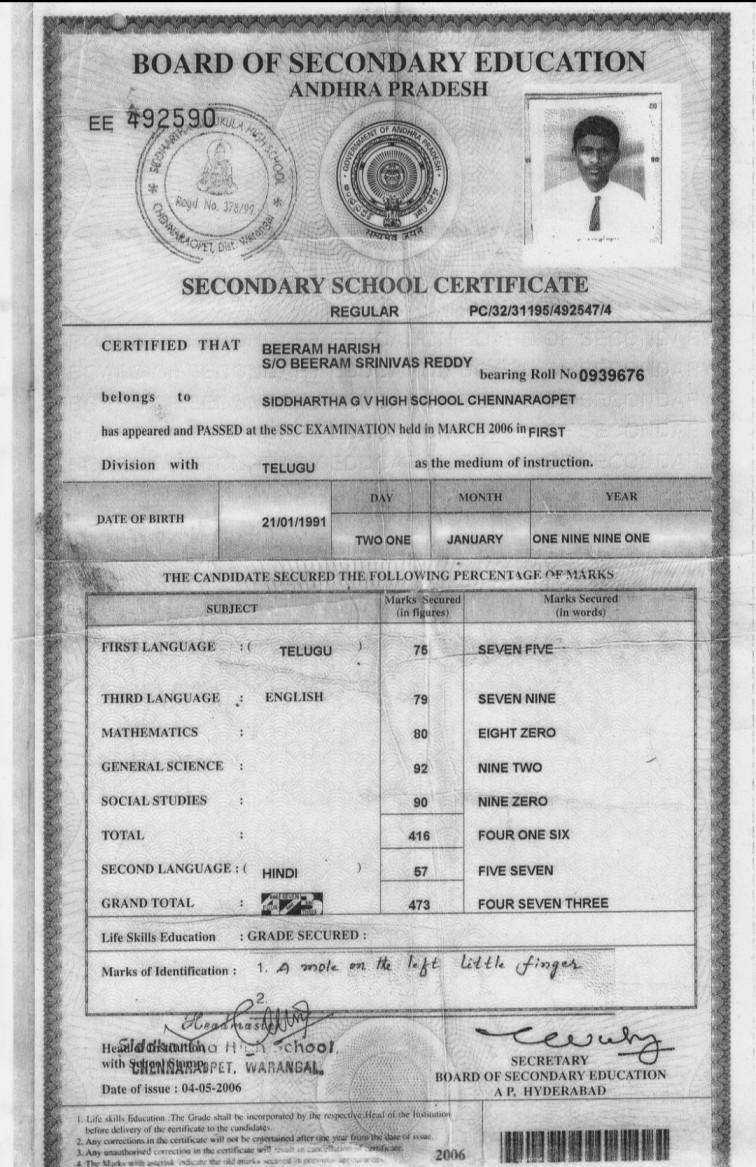 BOARD OF SECONDARY EDUCATION
ANDHRA PRADESH
EE 492590
SIDDHARTHA GURUKULA HIGH SCHOOL
Regd. No. 378/99
CHENNARAOPET, Dist. Warangal
GOVERNMENT OF ANDHRA PRADESH
सत्यमेव जयते
SECONDARY SCHOOL CERTIFICATE
REGULAR PC/32/31195/492547/4
CERTIFIED THAT BEERAM HARISH
S/O BEERAM SRINIVAS REDDY
bearing Roll No 0939676
belongs to SIDDHARTHA G V HIGH SCHOOL CHENNARAOPET
has appeared and PASSED at the SSC EXAMINATION held in MARCH 2006 in FIRST
Division with TELUGU as the medium of instruction.
DATE OF BIRTH 21/01/1991 DAY MONTH YEAR
TWO ONE JANUARY ONE NINE NINE ONE
THE CANDIDATE SECURED THE FOLLOWING PERCENTAGE OF MARKS
SUBJECT Marks Secured (in figures) Marks Secured (in words)
FIRST LANGUAGE : ( TELUGU ) 75 SEVEN FIVE
THIRD LANGUAGE : ENGLISH 79 SEVEN NINE
MATHEMATICS : 80 EIGHT ZERO
GENERAL SCIENCE : 92 NINE TWO
SOCIAL STUDIES : 90 NINE ZERO
TOTAL : 416 FOUR ONE SIX
SECOND LANGUAGE : ( HINDI ) 57 FIVE SEVEN
GRAND TOTAL : 473 473 FOUR SEVEN THREE
Life Skills Education : GRADE SECURED :
Marks of Identification : 1. A mole on the left little finger
2.
Headmaster
Siddhartha High School,
CHENNARAOPET, WARANGAL.
Head of the Institution
with School Stamp
Date of issue : 04-05-2006
SECRETARY
BOARD OF SECONDARY EDUCATION
A P. HYDERABAD
1. Life skills Education :The Grade shall be incorporated by the respective Head of the Institution
before delivery of the certificate to the candidates.
2. Any corrections in the certificate will not be entertained after one year from the date of issue.
3. Any unauthorised correction in the certificate will result in cancellation of certificate.
4. The Marks with asterisk indicate the old marks secured in previous appearances.
2006